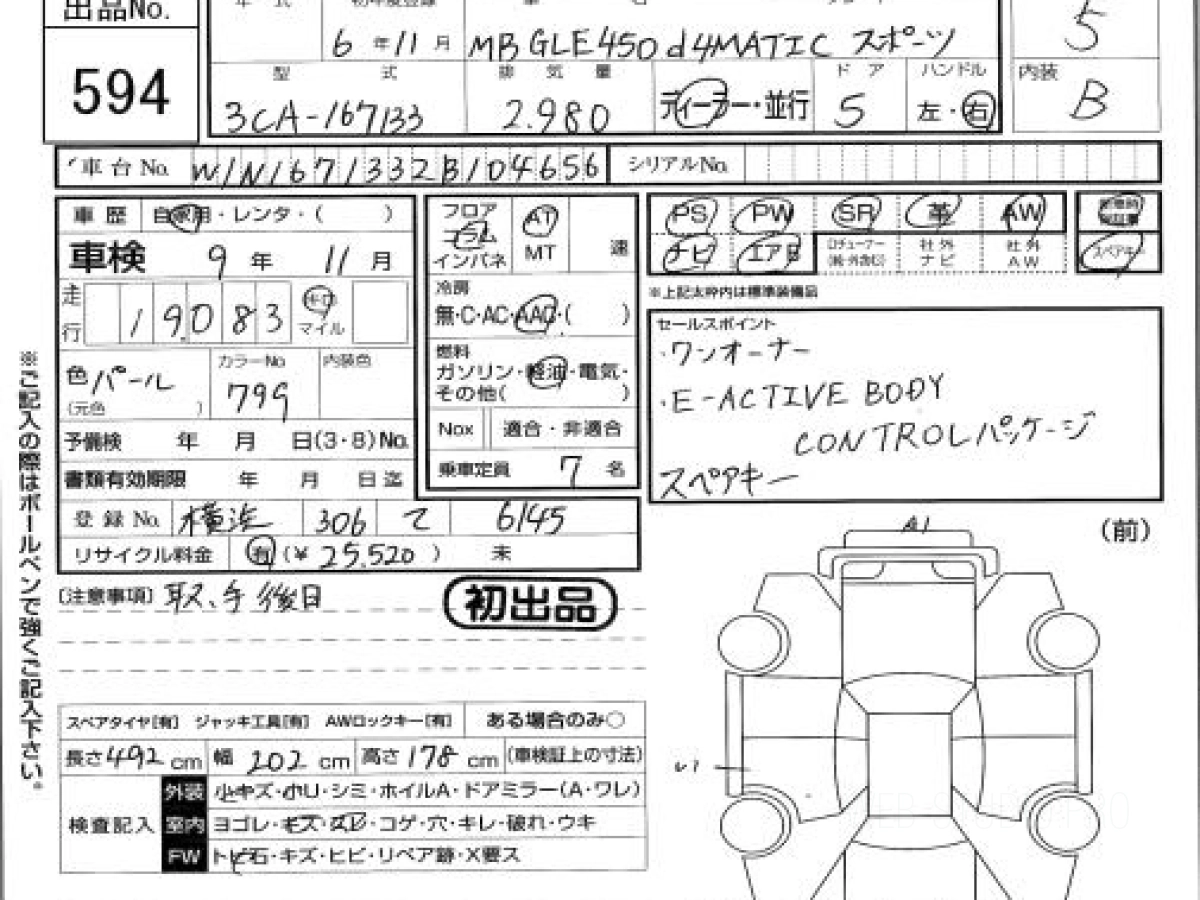 出品No.
594
年 式 初年度登録 車 名 グレード
6 年 11 月 MB GLE450 d 4MATIC スポーツ 5
型 式 排 気 量 ドア ハンドル 内装
3CA-167133 2.980 ディーラー・並行 5 左・右 B
車台No. W1N1671332B104656 シリアルNo.
車 歴 自家用・レンタ・( )
車検 9 年 11 月
走行 19.083 キロ マイル
色 パール (元色 ) カラーNo 799 内装色
予備検 年 月 日(3・8)No.
書類有効期限 年 月 日迄
登録No. 横浜 306 て 6145
リサイクル料金 有 (¥ 25,520 ) 未
フロア コラム インパネ AT MT 速
冷房
無・C・AC・AAC・( )
燃料
ガソリン・軽油・電気・
その他( )
Nox 適合・非適合
乗車定員 7 名
PS PW SR 革 AW
ナビ エアB ロチューナー (純・外含む) 社外ナビ 社外AW スペアキー
※上記太枠内は標準装備品
セールスポイント
・ワンオーナー
・E-ACTIVE BODY
CONTROLパッケージ
スペアキー
〔注意事項〕 取、手 後日
初出品
(前)
A1
スペアタイヤ[有] ジャッキ工具[有] AWロックキー[有] ある場合のみ○
長さ 492 cm 幅 202 cm 高さ 178 cm (車検証上の寸法)
検査記入
外装 小キズ・小凹・シミ・ホイルA・ドアミラー(A・ワレ)
室内 ヨゴレ・キズ・スレ・コゲ・穴・キレ・破れ・ウキ
FW トビ石・キズ・ヒビ・リペア跡・X要ス
※ご記入の際はボールペンで強くご記入下さい。